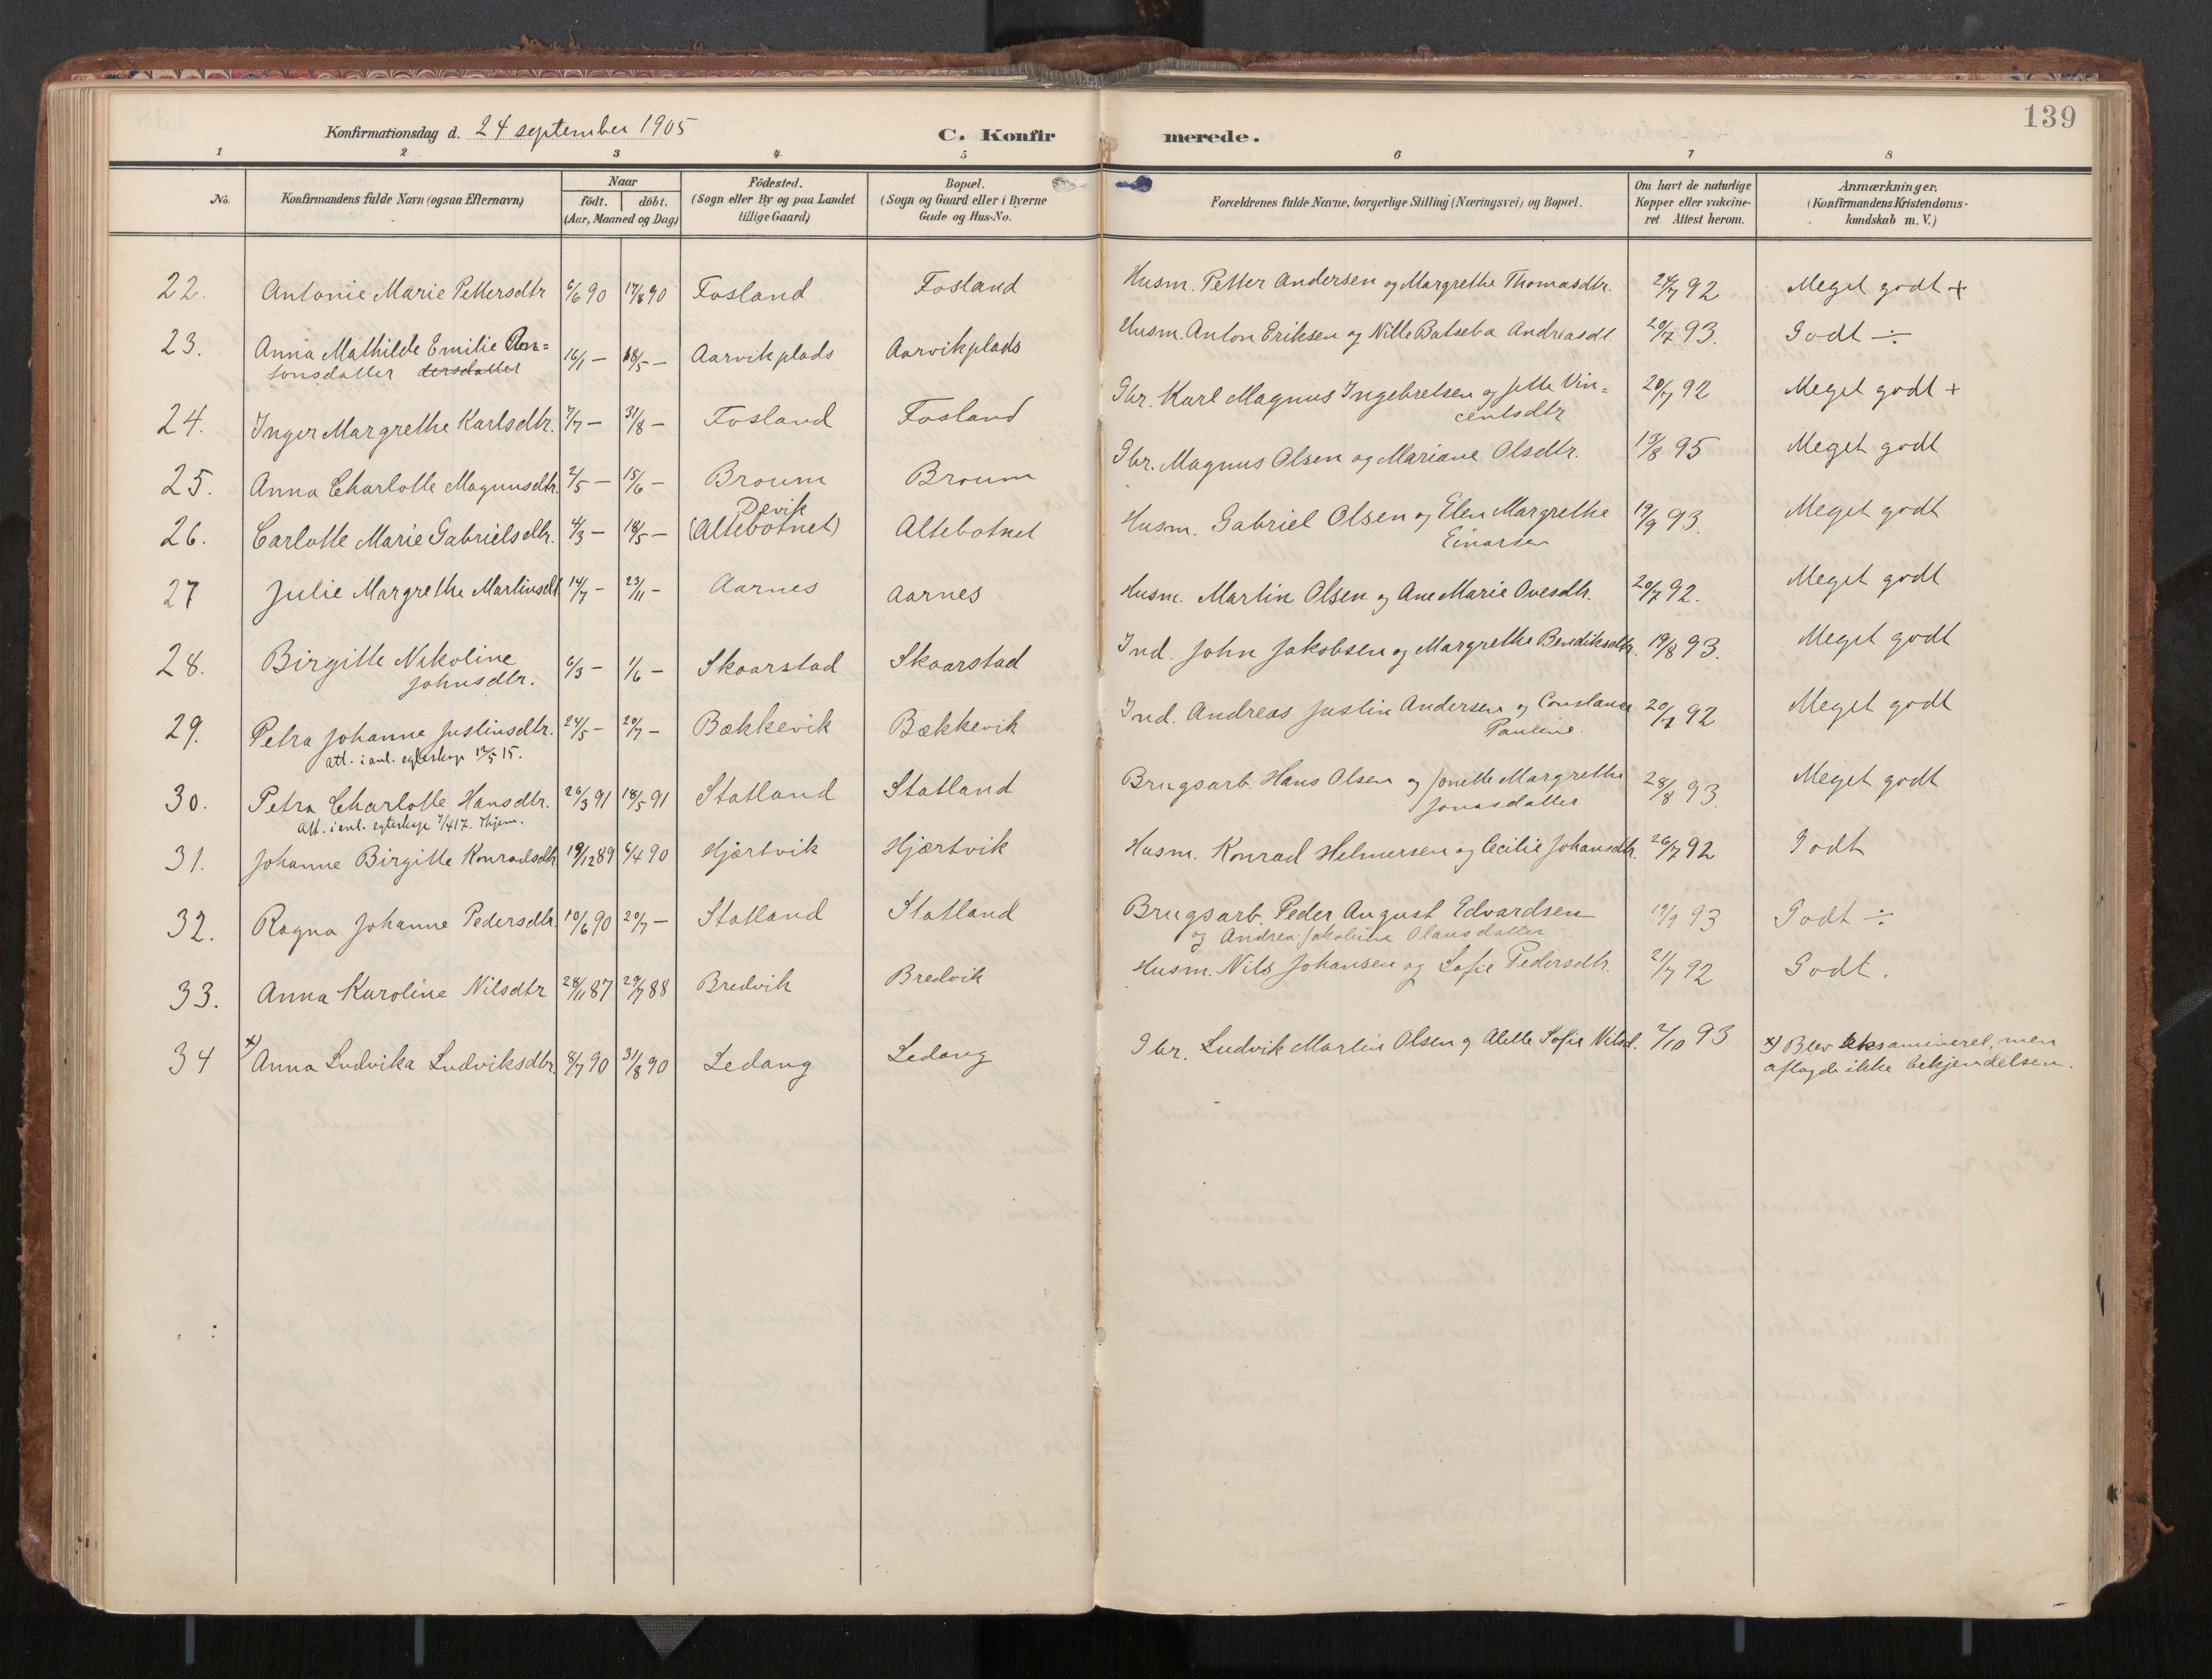 139
Konfirmationsdag d. 24 september 1905
C. Konfirmerede.
1 2 3 4 5 6 7 8
No. Konfirmandens fulde Navn (ogsaa Efternavn) Naar födt. döbt. (Aar, Maaned og Dag) Födested. (Sogn eller By og paa Landet tillige Gaard) Bopæl. (Sogn og Gaard eller i Byerne Gade og Hus-No. Forældrenes fulde Navne, borgerlige Stilling (Næringsvei) og Bopæl. Om havt de naturlige Kopper eller vakcineret. Attest herom. Anmærkninger. (Konfirmandens Kristendomskundskab m. V.)
22. Antonie Marie Pettersdtr 6/6 90 17/8 90 Fosland Fosland Husm. Petter Andersen og Margrethe Thomasdtr. 24/7 92 Meget godt +
23. Anna Mathilde Emilie An= 16/1 — 18/5 — Aarvikplads Aarvikplads Husm. Anton Eriksen og Nille Batseba Andreasdt. 20/7 93. Godt ÷
tonsdatter dersdatter
24. Inger Margrethe Karlsdtr. 7/7 — 31/8 — Fosland Fosland Gbr. Karl Magnus Ingebretsen og Jette Vin= 20/7 92 Meget godt +
centsdtr
25. Anna Charlotte Magnusdtr. 2/5 — 15/6 — Broum Broum Gbr. Magnus Olsen og Mariane Olsdtr. 13/8 95 Meget godt
Devik
26. Carlotte Marie Gabrielsdtr. 4/3 — 18/5 — (Altebotnet) Altebotnet Husm. Gabriel Olsen og Elen Margrethe 19/9 93. Meget godt
Einarsen
27 Julie Margrethe Martinsdt 14/7 - 23/11 - Aarnes Aarnes Husm. Martin Olsen og Ane Marie Ovesdtr. 20/7 92. Meget godt
28. Birgitte Nikoline 6/3 — 1/6 — Skaarstad Skaarstad Ind. John Jakobsen og Margrethe Bendiksdtr. 19/8 93. Meget godt
Johnsdtr.
29. Petra Johanne Justinsdtr. 24/5 - 20/7 - Bækkevik Bækkevik Ind. Andreas Justin Andersen og Constance 20/7 92 Meget godt
Pauline.
att. i anl. egteskap 12/5 15.
30. Petra Charlotte Hansdtr. 26/3 91 18/5 91 Statland Statland Brugsarb. Hans Olsen og Jonette Margrethe 28/8 93. Meget godt
Jonasdatter
Att. i anl. egteskap 7/4 17. Thjem.
31. Johanne Birgitte Konradsdtr 19/12 89 6/4 90 Hjærtvik Hjærtvik Husm. Konrad Helmersen og Cecilie Johansdtr. 26/7 92 Godt
32. Ragna Johanne Pedersdtr. 10/6 90 20/7 — Statland Statland Brugsarb. Peder August Edvardsen 19/9 93 Godt ÷
og Andrea Jakobine Olausdatter
33. Anna Karoline Nilsdtr 28/11 87 29/7 88 Bredvik Bredvik Husm. Nils Johansen og Sofie Pedersdtr. 21/7 92 Godt.
34 x) Anna Ludvika Ludviksdtr. 8/7 90 31/8 90 Ledang Ledang Gbr. Ludvik Martin Olsen og Alette Sofie Nilsd. 2/10 93 x) Blev eksamineret, men
aflagde ikke bekjendelsen.